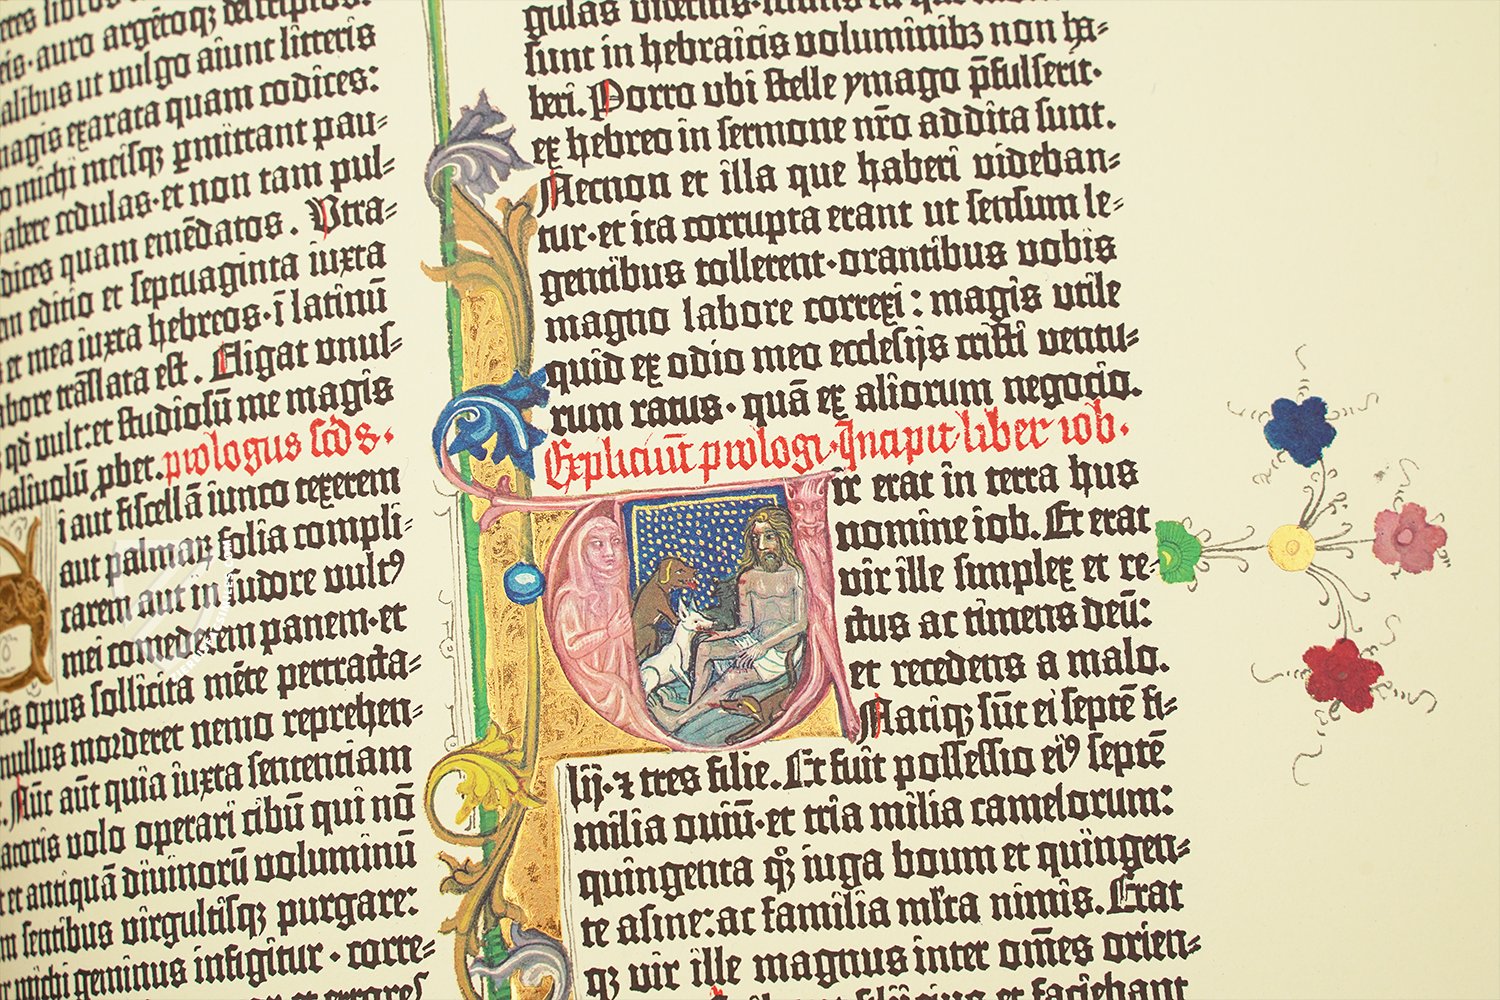 eis · auro argētoq; descriptos.
alibus ut vulgo aiunt litteris
magis exarata quam codices:
michi meisq; ꝑmittant pau-
habere cedulas · et non tam pul-
codices quam emēdatos . Utra-
editio et septuaginta iuxta
et mea iuxta hebreos · ī latinū
labore trāslata est . Eligat unus-
qd̄ vult: et studiosū me magis
maliuolū ꝓbet. prologus scd̄s.
i aut fiscellā iunco texerem
aut palmaꝝ folia compli-
carem aut in sudore vultꝰ
mei comederem panem · et
opus sollicita mēte pertracta-
nullus morderet nemo reprehen-
Nūc aūt quia iuxta sententiam
volo operari cibū qui nō
et antiquā diuinorū voluminū
sentibus virgultisq; purgare:
michi geminus infigitur · corre-
sunt in hebraicis voluminibꝫ non ha-
beri. Porro ubi stelle ymago p̄fulserit·
ex hebreo in sermone nr̄o addita sunt.
Necnon et illa que haberi videban-
tur · et ita corrupta erant ut sensum le-
gentibus tollerent · orantibus vobis
magno labore correxi: magis utile
quid ex odio meo ecclesijs cristi ventu-
rum ratus · quā ex aliorum negocio.
Expliciūt prologi. Incipit liber iob.
Vir erat in terra hus
nomine iob. Et erat
vir ille simplex et re-
ctus ac timens deū:
et recedens a malo.
Natiq; sūt ei septē fi-
lij · ⁊ tres filie. Et fuit possessio eiꝰ septē
milia ouiū · et tria milia camelorum:
quingenta qꝫ iuga boum et quingen-
te asine: ac familia ml̄ta nimis. Erat
qꝫ vir ille magnus inter om̄es orien-